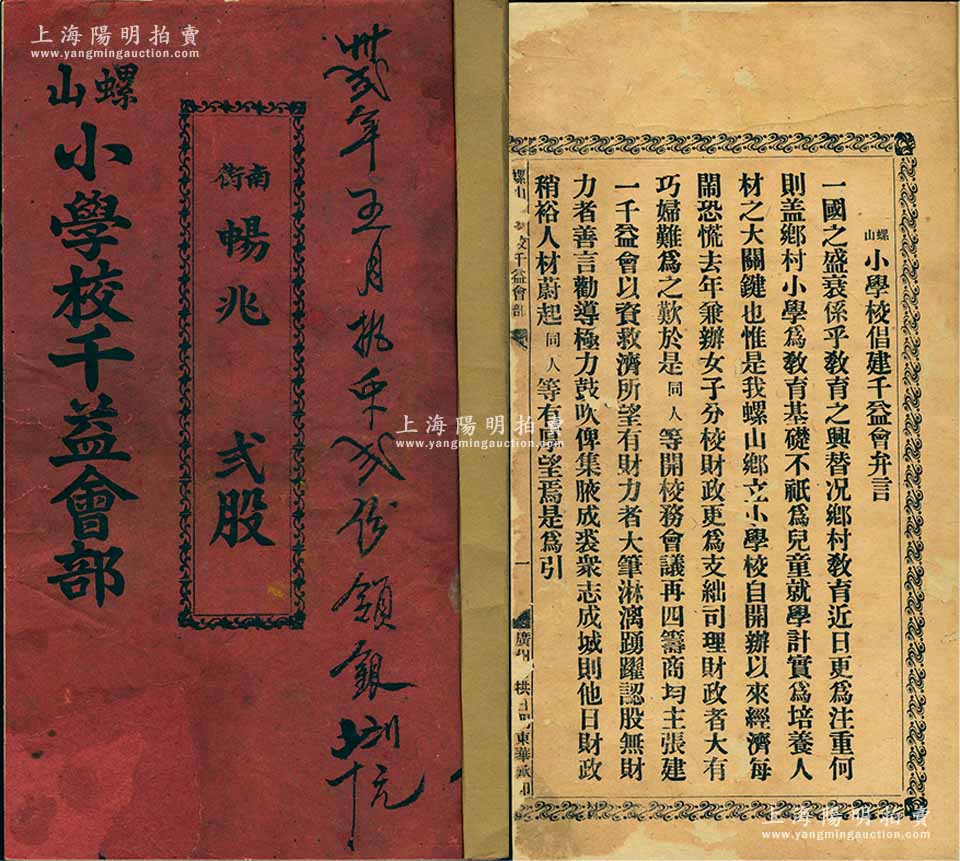 上海陽明拍賣
www.yangmingauction.com
螺山
小學校千益會部
南街 暢兆 弍股
年五月
份領銀
螺山 小學校倡建千益會弁言
一國之盛衰係乎教育之興替况鄉村教育近日更爲注重何
則盖鄉村小學爲教育基礎不衹爲兒童就學計實爲培養人
材之大關鍵也惟是我螺山鄉立小學校自開辦以來經濟每
鬧恐慌去年兼辦女子分校財政更爲支絀司理財政者大有
巧婦難爲之歎於是同人等開校務會議再四籌商均主張建
一千益會以資救濟所望有財力者大筆淋漓踴躍認股無財
力者善言勸導極力鼓吹俾集腋成裘衆志成城則他日財政
稍裕人材蔚起同人等有厚望焉是爲引
螺山 校千益會部
一
東華
上海陽明拍賣
www.yangmingauction.com
上海陽明拍賣
www.yangmingauction.com